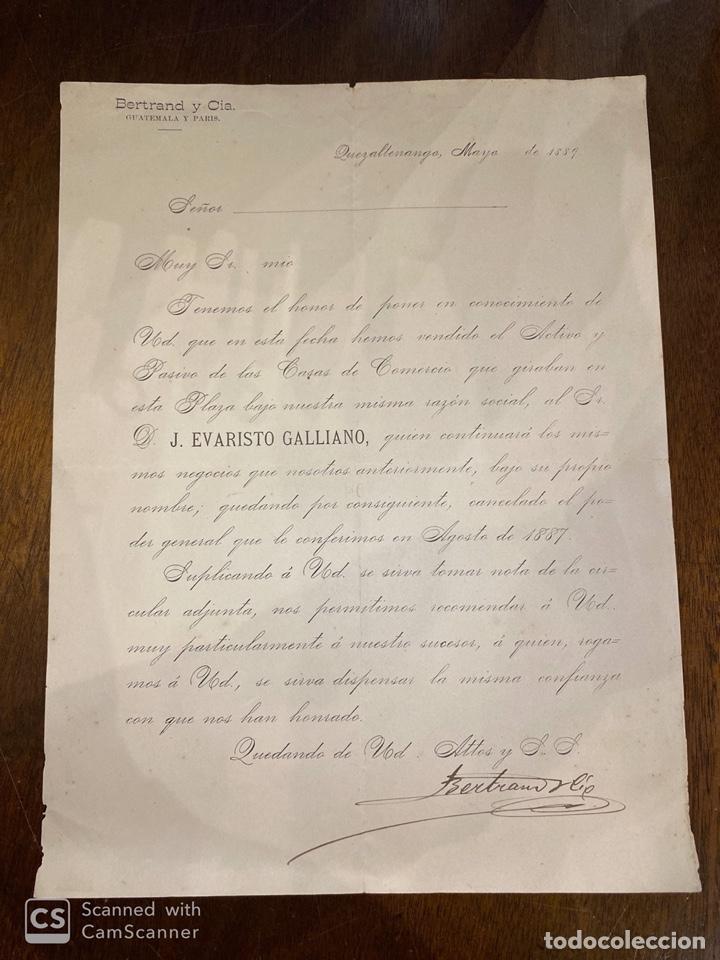 Bertrand y Cia.
GUATEMALA Y PARIS.
Quezaltenango, Mayo de 1889
Señor
Muy Sr. mio
Tenemos el honor de poner en conocimiento de
Ud. que en esta fecha hemos vendido el Activo y
Pasivo de las Casas de Comercio que giraban en
esta Plaza bajo nuestra misma razón social, al Sr.
D. J. EVARISTO GALLIANO, quien continuará los mis=
mos negocios que nosotros anteriormente, bajo su propio
nombre; quedando por consiguiente, cancelado el po=
der general que le conferimos en Agosto de 1887.
Suplicando á Ud. se sirva tomar nota de la cir=
cular adjunta, nos permitimos recomendar á Ud.
muy particularmente á nuestro sucesor, á quien, roga=
mos á Ud., se sirva dispensar la misma confianza
con que nos han honrado.
Quedando de Ud. Attos y S. S.
Bertrand & Cie
CS Scanned with
CamScanner
todocoleccion